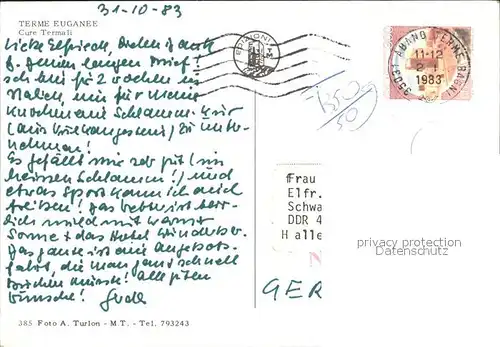 31-10-83
TERME EUGANEE
Cure Termali
Liebe Elfriede, Vielen Dank
f. Deinen langen Brief!
ich bin für 2 Wochen in
Italien, um für meine
Knochen eine Schlamm-Kur
zu unter-
nehmen!
Es gefällt mir sehr gut (im
heissen Schlamm!) und
etwas Sport kann ich auch
treiben! Das Wetter ist herr-
lich mild mit warmer
Sonne + das Hotel wunderbar.
Das ganze ist eine Angebots-
fahrt, die man ganz schnell
buchen musste! Alle guten
Wünsche!
385 Foto A. Turlon - M.T. - Tel. 793243
EDIZIONI
T
M
ABANO TERME (BAGNI)
35031
11-12
1983
50
Frau
Elfr.
Schwa
DDR 4
Halle
privacy protection
Datenschutz
GER